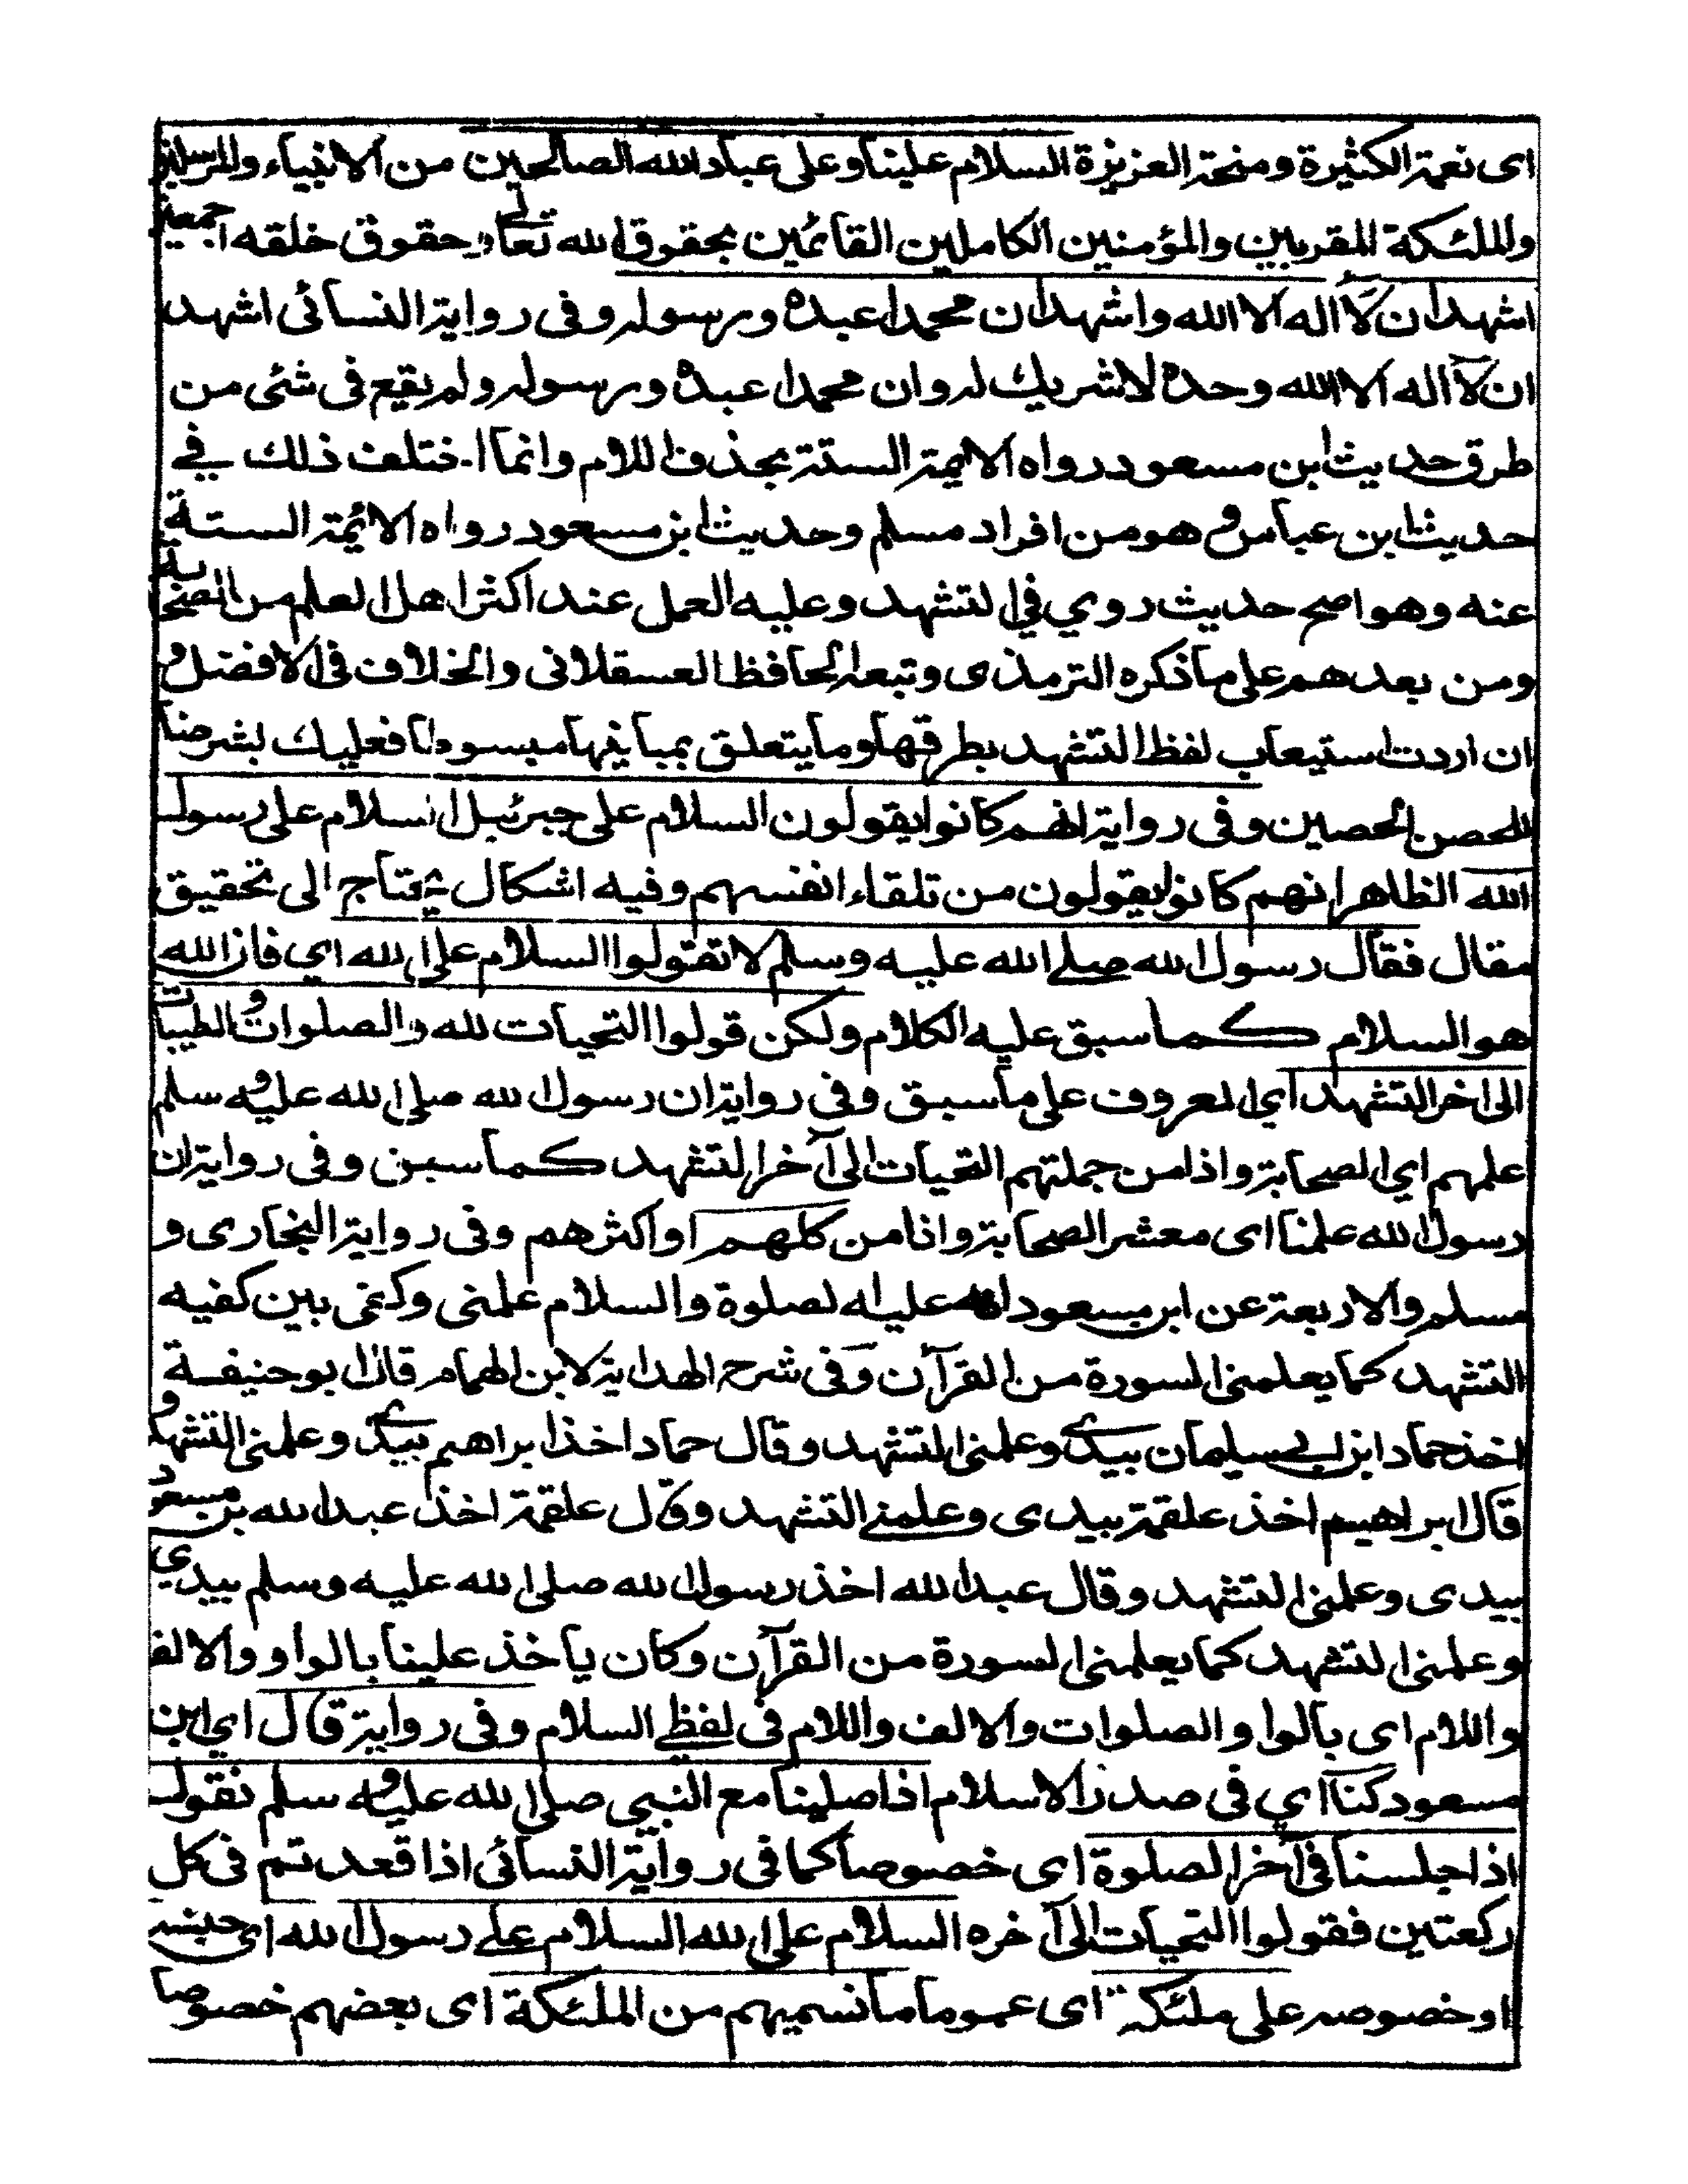 اى نعمة الكثيرة ومنحة العزيزة السلام علينا وعلى عباد الله الصالحين من الانبياء والمرسلين
والملئكة المقربين والمؤمنين الكاملين القائمين بحقوق الله تعالى وحقوق خلقه اجمعين
اشهد ان لا اله الا الله واشهد ان محمدا عبده ورسوله وفى رواية النسائى اشهد
ان لا اله الا الله وحده لا شريك له وان محمدا عبده ورسوله ولم يقع فى شئى من
طرق حديث ابن مسعود رواه الايمة الستة بحذف اللام وانما اختلف ذلك في
حديث ابن عباس وهو من افراد مسلم وحديث ابن مسعود رواه الائمة الستة
عنه وهو اصح حديث روي في التشهد وعليه العمل عند اكثر اهل العلم من الصحابة
ومن بعدهم على ما ذكره الترمذى وتبعه الحافظ العسقلانى والخلاف فى الافضل و
ان اردت استيعاب لفظ التشهد بطرقها وما يتعلق بمبانيها مبسوطا فعليك بشرحنا
للحصن الحصين وفى رواية انهم كانوا يقولون السلام على جبرئيل السلام على رسول
الله الظاهر انهم كانوا يقولون من تلقاء انفسهم وفيه اشكال يحتاج الى تحقيق
مقال فقال رسول الله صلى الله عليه وسلم لا تقولوا السلام على الله اي فان الله
هو السلام كما سبق عليه الكلام ولكن قولوا التحيات لله والصلوات والطيبات
الى اخر التشهد اي المعروف على ما سبق وفى رواية ان رسول الله صلى الله عليه وسلم
علمهم اي الصحابة واذا من جملتهم التحيات الى آخر التشهد كما سبق وفى رواية ان
رسول الله علمنا اى معشر الصحابة وانا من كلهم او اكثرهم وفى رواية البخارى و
مسلم والاربعة عن ابن مسعود انه عليه الصلوة والسلام علمنى وكفى بين كفيه
التشهد كما يعلمنى السورة من القرآن وفى شرح الهداية لابن الهمام قال ابو حنيفة
اخذ حماد ابن ابي سليمان بيدي وعلمنى التشهد وقال حماد اخذ ابراهيم بيدي وعلمنى التشهد و
قال ابراهيم اخذ علقمة بيدى وعلمني التشهد وقال علقمة اخذ عبد الله بن مسعود
بيدى وعلمنى التشهد وقال عبد الله اخذ رسول الله صلى الله عليه وسلم بيدي
وعلمنى التشهد كما يعلمنى السورة من القرآن وكان ياخذ علينا بالواو والالف
واللام اى بالواو الصلوات والالف واللام فى لفظي السلام وفى رواية قال اي ابن
مسعود كنا اي فى صدر الاسلام اذا صلينا مع النبي صلى الله عليه وسلم نقول
اذا جلسنا فى آخر الصلوة اى خصوصا كما فى رواية النسائى اذا قعدتم فى كل
ركعتين فقولوا التحيات الى آخره السلام على الله السلام على رسول الله اى جنسه
او خصوصه على ملئكة اى عموما ما نسميهم من الملئكة اى بعضهم خصوصا